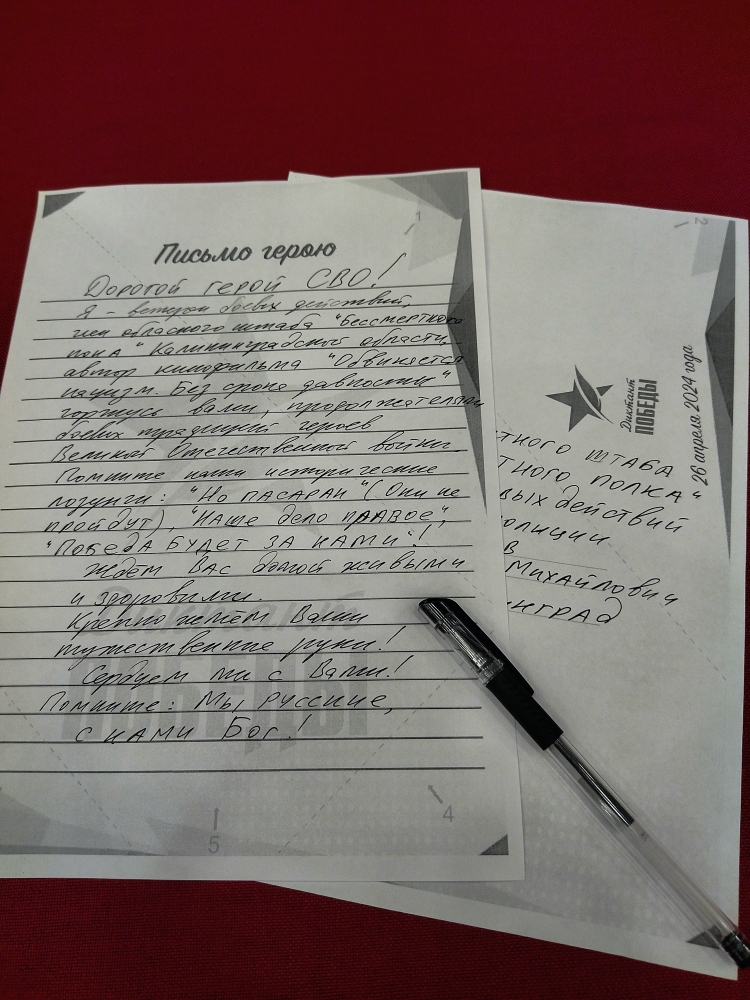 Письмо герою
Дорогой герой СВО!
Я - ветеран боевых действий,
член областного штаба "Бессмертного
полка" Калининградской области,
автор кинофильма "Обвиняется
нацизм. Без срока давности"
горжусь вами, продолжателями
боевых традиций героев
Великой Отечественной войны.
Помните наши исторические
лозунги: "Но пасаран" (Они не
пройдут), "Наше дело правое",
"Победа будет за нами"!
Ждем Вас домой живыми
и здоровыми.
Крепко жмём Ваши
мужественные руки!
Сердцем мы с Вами!
Помните: Мы русские,
с нами Бог!
ПОБЕДЫ
1
5
4
2
Диктант
ПОБЕДЫ
26 апреля 2024 года
тного штаба
тного полка"
вых действий
олиции
в
Михайлович
нград